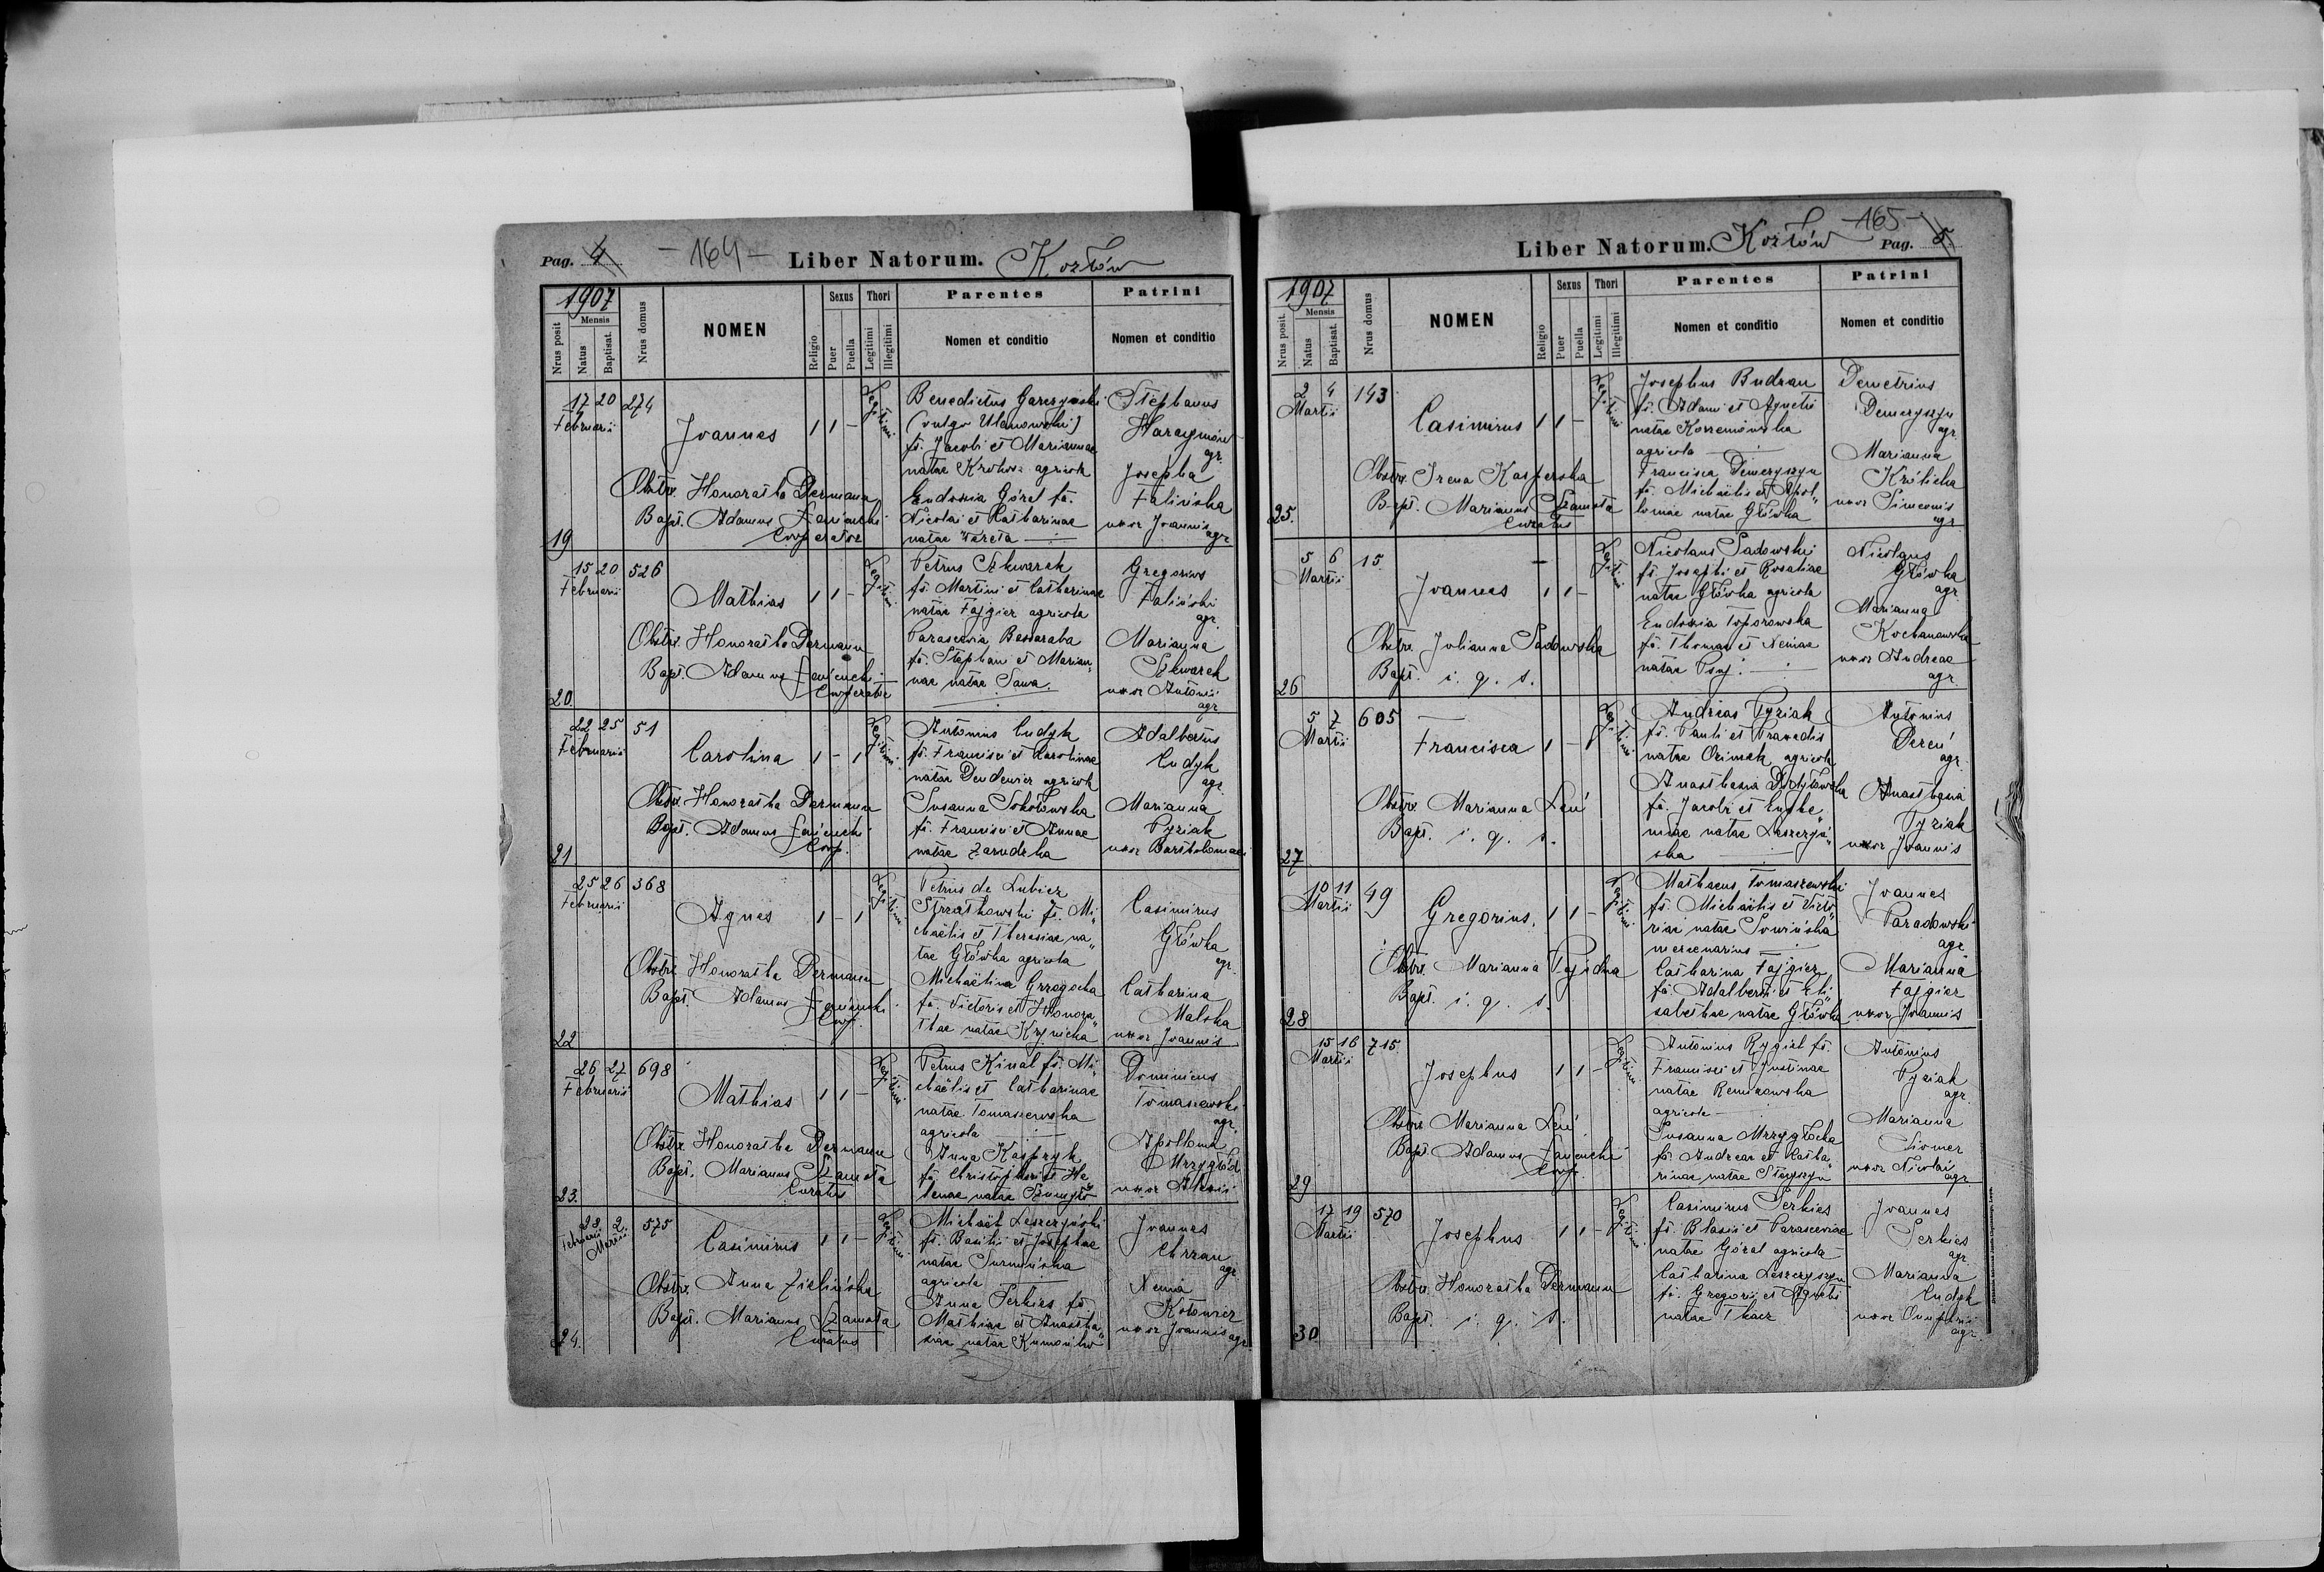 Pag. 4
- 164 -
Liber Natorum. Kozłów
1907
Nrus posit
Mensis
Natus
Baptisat.
Nrus domus
NOMEN
Religio
Sexus
Puer
Puella
Thori
Legitimi
Illegitimi
Parentes
Nomen et conditio
Patrini
Nomen et conditio
19
17 20 274
Februarii
Joannes
1 1 -
Legitimi
Obstx. Honoratha Dermann
Bapt. Adamus Łańcucki
Cooperator
Benedictus Garczyński
(vulgo Ulanowski)
fs. Jacobi et Mariannae
natae agricola
Eudoxia Góral fa.
Nicolai et Catharinae
natae Wareta
Stephanus
Haraymów
agr.
Josepha
Falińska
uxor Joannis
agr
20.
15 20 526
Februarii
Mathias
1 1 -
Legitimi
Obstx. Honoratha Dermann
Bapt. Adamus Łańcucki
Cooperator
Petrus Szkwarek
fs. Martini et Catharinae
natae Fajgier agricola
Parascevia Bessaraba
fa. Stephani et Marian„
nae natae Sawa.
Gregorius
Faliński
agr.
Marianna
Szkwarek
uxor Antonii
agr
21
22 25 51
Februarii
Carolina
1 - 1
Legitimi
Obstx. Honoratha Dermann
Bapt. Adamus Łańcucki
Coop.
Antonius Cudyk
fs. Francisci et Carolinae
natae Dendewicz agricola
Susanna Sokołowska
fa. Francisci et Annae
natae Zarudzka
Adalbertus
Cudyk
agr.
Marianna
Pyziak
uxor Bartholomaei
22
25 26 368
Februarii
Agnes
1 - 1
Legitimi
Obstx. Honoratha Dermann
Bapt. Adamus Łańcucki
Coop.
Petrus de Lubicz
Strzałkowski fs. Mi„
chaëlis et Theresiae na„
tae Główka agricola
Michaëlina Grzegocka
fa. Victoris et Honora„
thae natae Krynicka
Casimirus
Główka
agr.
Catharina
Malska
uxor Joannis
23.
26 27 698
Februarii
Mathias
1 1 -
Legitimi
Obstx. Honoratha Dermann
Bapt. Marianus Szamota
Curatus
Petrus Kinal fs. Mi„
chaëlis et Catharinae
natae Tomaszewska
agricola
Anna Kasprzyk
fa. Christophori et He„
lenae natae
Dominicus
Tomaszewski
agr.
Apollonia
Mrzygłód
uxor Alexii
24.
28. 2.
Februarii Martii
575
Casimirus
1 1 -
Legitimi
Obstx. Anna Zielińska
Bapt. Marianus Szamota
Curatus
Michaël Leszczyński
fs. Basilii et Josephae
natae Surmińska
agricola
Anna Serkies fa.
Mathiae et Anastha„
siae natae
Joannes
Chrzan
agr
Xenia
Kołomzer
uxor Joannis agr
-165-
Liber Natorum. Kozłów
Pag. 5
1907
Nrus posit.
Mensis
Natus
Baptisat.
Nrus domus
NOMEN
Religio
Sexus
Puer
Puella
Thori
Legitimi
Illegitimi
Parentes
Nomen et conditio
Patrini
Nomen et conditio
25.
2 4 143
Martii
Casimirus
1 1 -
Legitimi
Obstx. Irena Kasperska
Bapt. Marianus Szamota
Curatus
Josephus Budzan
fs. Adami et Agnetis
natae Korzeniowska
agricola
Francisca Demeryszyn
fa. Michaëlis et Apol„
loniae natae Główka
Demetrius
Demeryszyn
agr.
Marianna
Królicka
uxor Simeonis
agr
26
5 6 15.
Martii
Joannes
1 1 -
Legitimi
Obstx. Julianna Sadowska
Bapt. i. q. s.
Nicolaus Sadowski
fs. Josephi et Rosaliae
natae Główka agricola
Eudoxia Toporowska
fa. Thomae et Xeniae
natae Psuj.
Nicolaus
Główka
agr.
Marianna
Kochanowska
uxor Andreae
agr.
27
5 7 605
Martii
Francisca
1 - 1
Legitimi
Obstx. Marianna Leń
Bapt. i. q. s.
Andreas Pyziak
fs. Pauli et Praxedis
natae Ozimek agricola
Anasthasia
fa. Jacobi et Euphe„
miae natae Leszczyń„
ska
Antonius
Dereń
agr.
Anasthasia
Pyziak
uxor Joannis
28
10 11 49
Martii
Gregorius.
1 1 -
Legitimi
Obstx. Marianna Pajdna
Bapt. i. q. s.
Mathaeus Tomaszewski
fs. Michaëlis et Victo„
riae natae Sowińska
mercenarius
Catharina Fajgier
fa. Adalberti et Eli„
sabethae natae Główka
Joannes
Paradowski
agr
Marianna
Fajgier
uxor Joannis
29
15 16 715.
Martii
Josephus
1 1 -
Legitimi
Obstx. Marianna Leń
Bapt. Adamus Łańcucki
Coop.
Antonius Rygiel fs.
Francisci et Justinae
natae Remizowska
agricola
Susanna Mrzygłocka
fa. Andreae et Catha„
rinae natae
Antonius
Pyziak
agr.
Marianna
Siomer
uxor Nicolai
agr.
30
17 19 570
Martii
Josephus
1 1 -
Legitimi
Obstx. Honoratha Dermann
Bapt. i. q. s.
Casimirus Serkies
fs. Blasii et Parasceviae
natae Góral agricola
Catharina Leszczyszyn
fa. Gregorii et Agnetis
natae Tkacz
Joannes
Serkies
agr.
Marianna
Cudyk
uxor Onuphrii
agr.